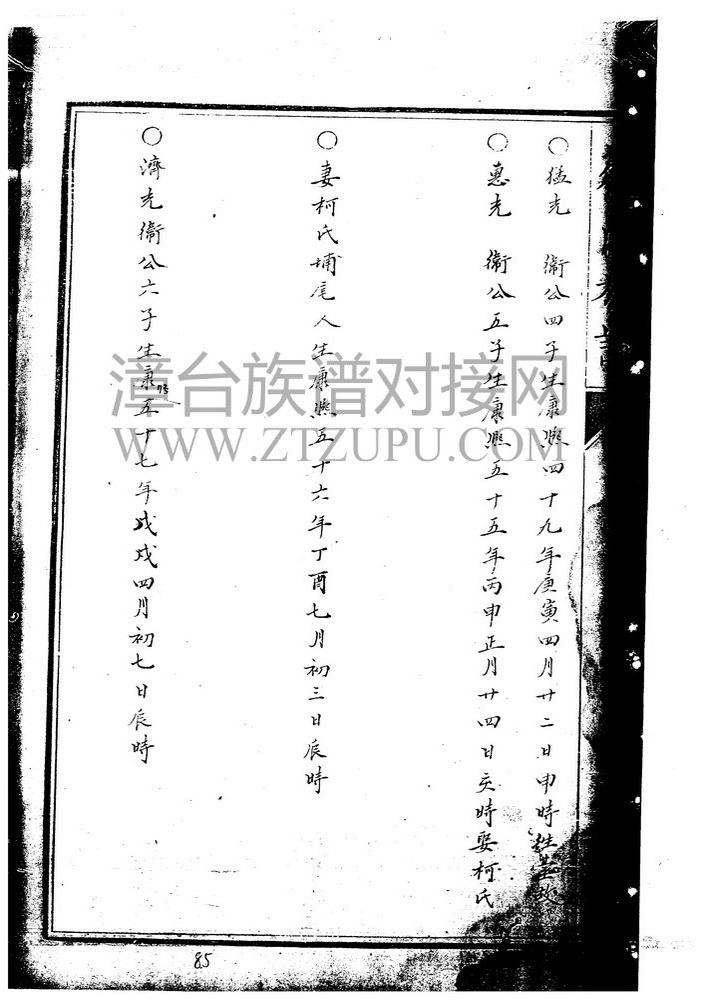 ○猛光 衞公四子生康熙四十九年庚寅四月廿二日申時往臺
○惠光 衞公五子生康熙五十五年丙申正月廿四日亥時娶柯氏
○妻柯氏埔尾人生康熙五十六年丁酉七月初三日辰時
○濟光衞公六子生康熙五十七年戊戌四月初七日辰時
漳台族谱对接网
WWW.ZTZUPU.COM
85